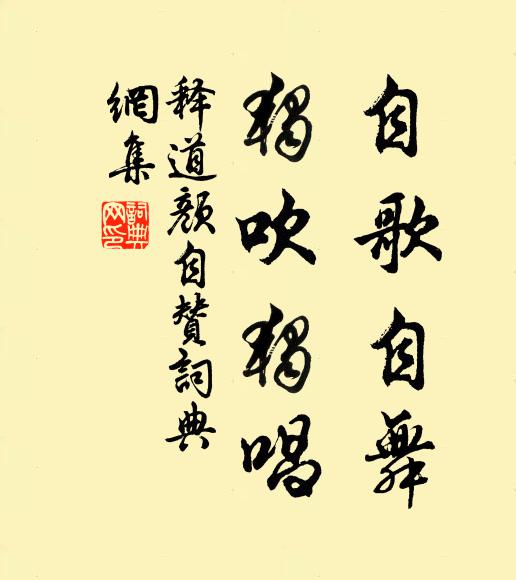 自歌自舞
獨吹獨唱
释道顏自赞詞典
網集
詞典
网印